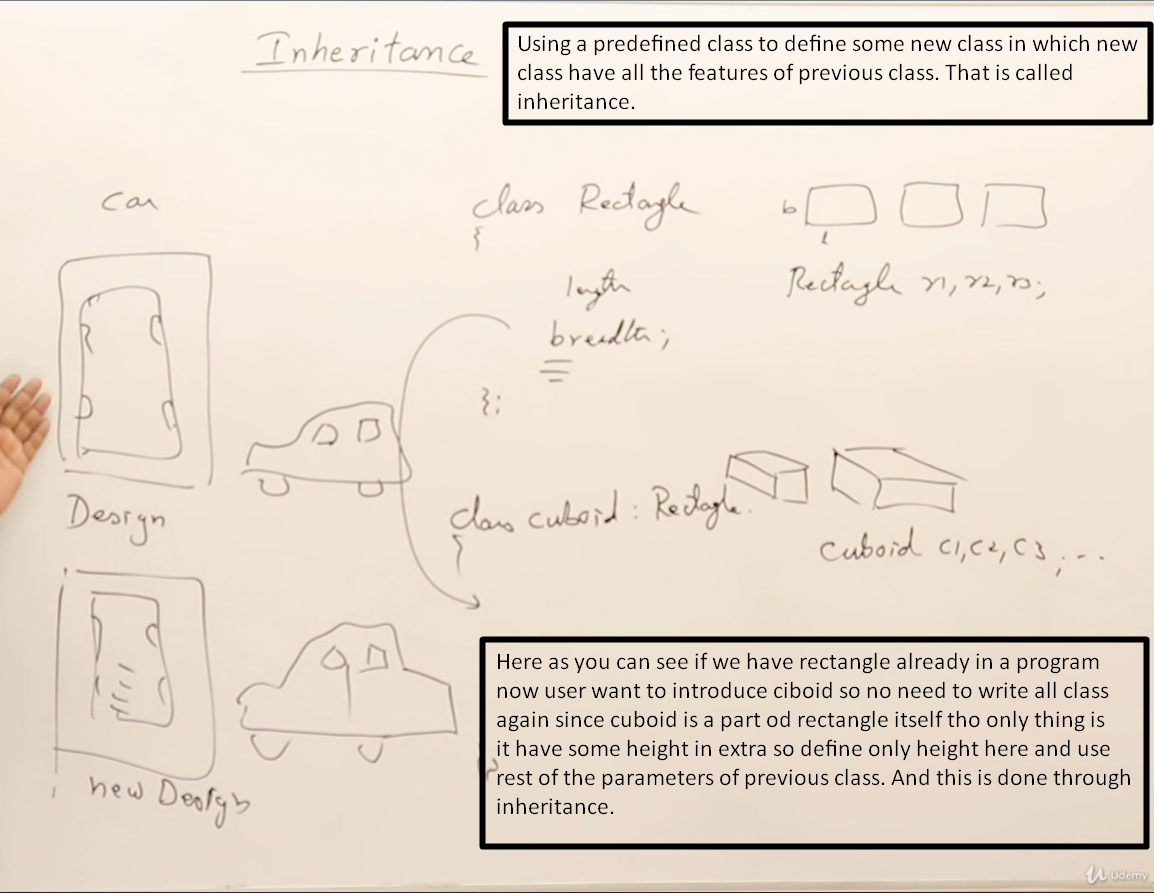 Inheritance
Using a predefined class to define some new class in which new
class have all the features of previous class. That is called
inheritance.
Car
class Rectagle
{
length
breadth;
};
b
l
Rectagle r1, r2, r3;
Design
class cuboid : Rectagle.
{
Cuboid C1, C2, C3 ; ...
new Design
Here as you can see if we have rectangle already in a program
now user want to introduce ciboid so no need to write all class
again since cuboid is a part od rectangle itself tho only thing is
it have some height in extra so define only height here and use
rest of the parameters of previous class. And this is done through
inheritance.
}
Udemy